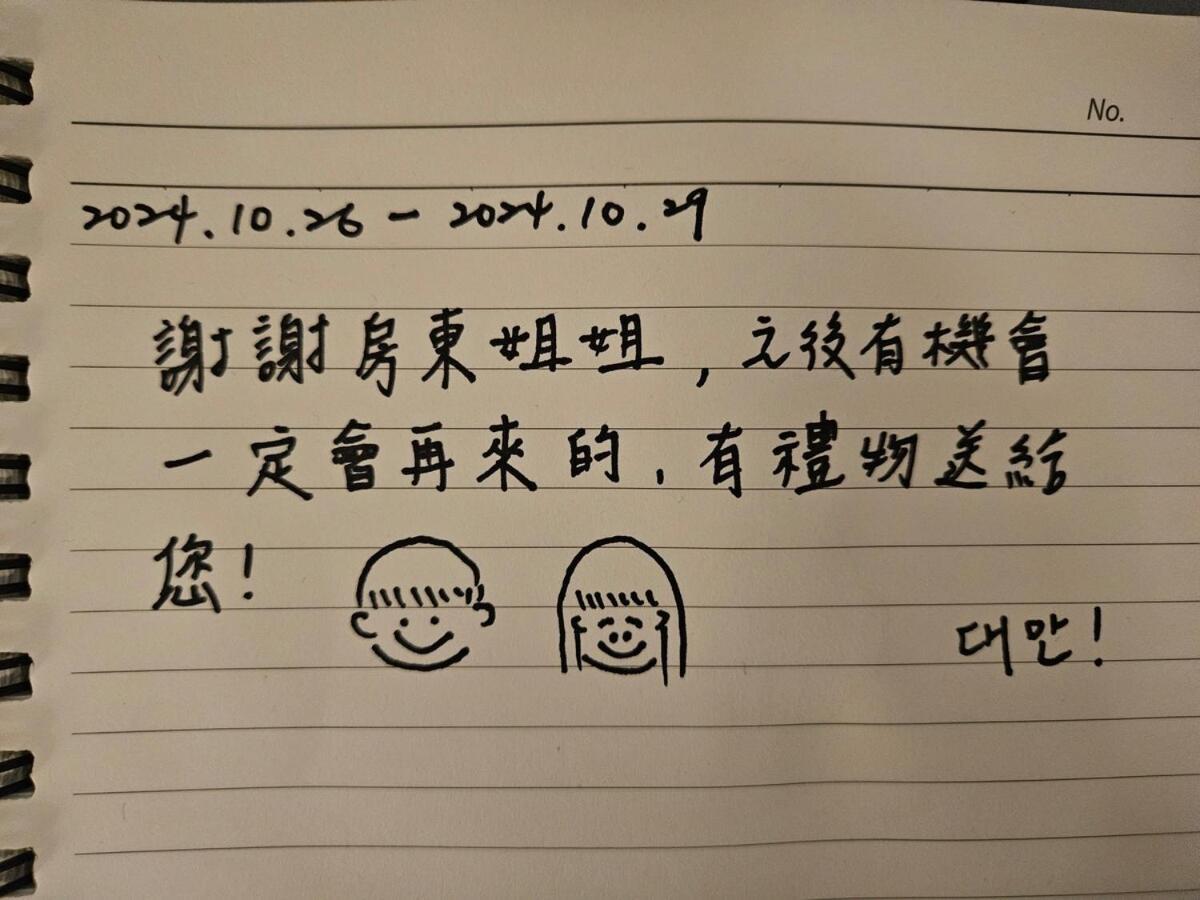 No.
2024.10.26 - 2024.10.29
謝謝房東姐姐，之後有機會
一定會再來的，有禮物送給
您！
대만!